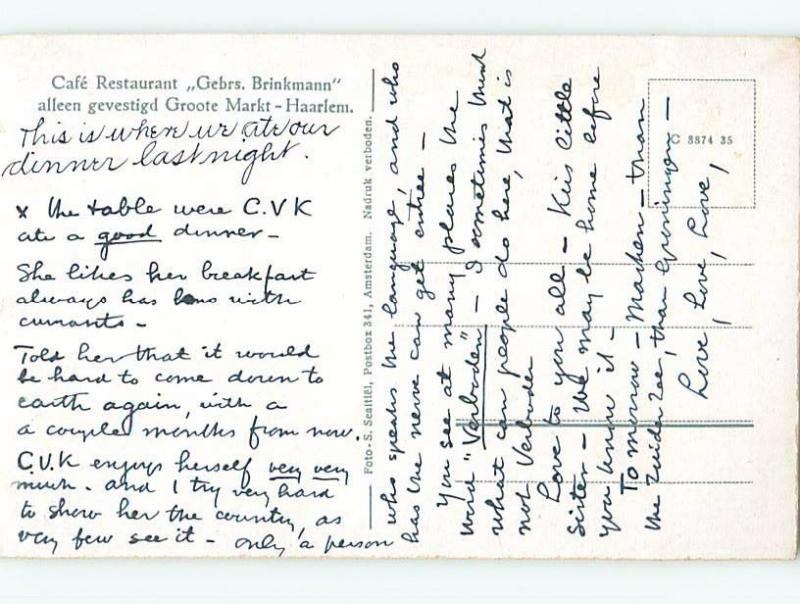 Café Restaurant „Gebrs. Brinkmann”
alleen gevestigd Groote Markt - Haarlem.
This is where we ate our
dinner last night.
x the table were C.V.K
ate a good dinner -
She likes her breakfast
always has with
currants -
Told her that it would
be hard to come down to
earth again, with a
a couple months from now.
C.V.K enjoys herself very very
much - and I try very hard
to show her the country, as
very few see it - only a person
who speaks the language, and who
has the nerve can get entree -
You see at many places the
word "Verboden" - I sometimes think
what can people do here, that is
not Verboden
Love to you all - Kiss little
Sister - We may be home before
you know it -
To morrow - Marken - than
the Zuider Zee, than Groningen -
Love, Love, Love,
Foto - S. Sealtiël, Postbox 341, Amsterdam. Nadruk verboden.
C 3874 35